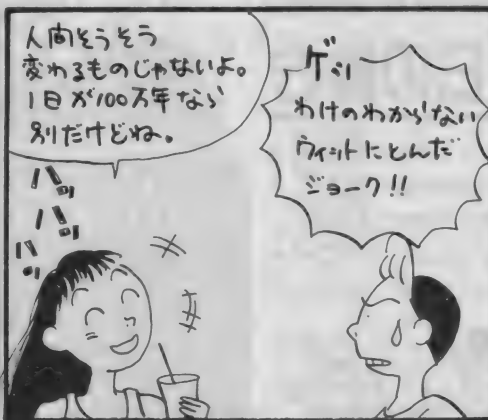 人間そうそう
変わるものじゃないよ。
1日が100万年なら
別だけどね。
ハッ
ハッ
ハッ
ゲッ
わけのわからない
ウィットにとんだ
ジョーク!!